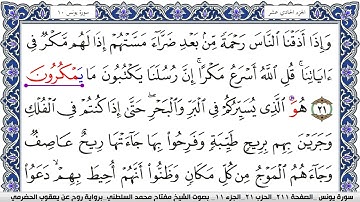 الجزء الحادي عشر
سورة يونس ١٠
وَإِذَآ أَذَقْنَا ٱلنَّاسَ رَحْمَةً مِّنۢ بَعْدِ ضَرَّآءَ مَسَّتْهُمْ إِذَا لَهُم مَّكْرٌ فِىٓ
ءَايَاتِنَا ۚ قُلِ ٱللَّهُ أَسْرَعُ مَكْرًا ۚ إِنَّ رُسُلَنَا يَكْتُبُونَ مَا يَمْكُرُونَ
٢١ هُوَ ٱلَّذِى يُسَيِّرُكُمْ فِى ٱلْبَرِّ وَٱلْبَحْرِ ۖ حَتَّىٰٓ إِذَا كُنتُمْ فِى ٱلْفُلْكِ
وَجَرَيْنَ بِهِم بِرِيحٍ طَيِّبَةٍ وَفَرِحُوا۟ بِهَا جَآءَتْهَا رِيحٌ عَاصِفٌ
وَجَآءَهُمُ ٱلْمَوْجُ مِن كُلِّ مَكَانٍ وَظَنُّوٓا۟ أَنَّهُمْ أُحِيطَ بِهِمْ ۙ دَعَوُا۟
سورة يونس - الصفحة ٢١١ - الحزب ٢١ - الجزء ١١ - بصوت الشيخ مفتاح محمد السلطني - برواية روح عن يعقوب الحضرمي